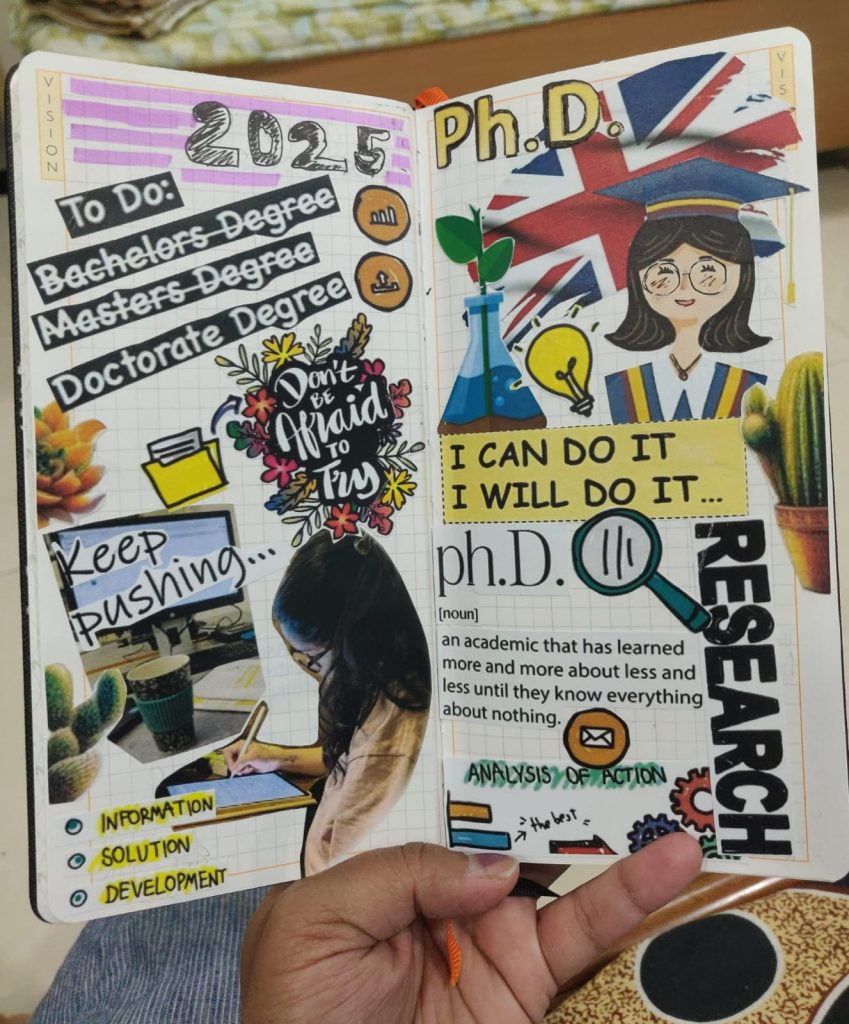 VISION
2025
To Do:
Bachelors Degree
Masters Degree
Doctorate Degree
Don't
BE
Afraid
TO
Try
Keep
pushing...
INFORMATION
SOLUTION
DEVELOPMENT
VIS
Ph.D.
I CAN DO IT
I WILL DO IT...
ph.D.
[noun]
an academic that has learned
more and more about less and
less until they know everything
about nothing.
RESEARCH
ANALYSIS OF ACTION
the best